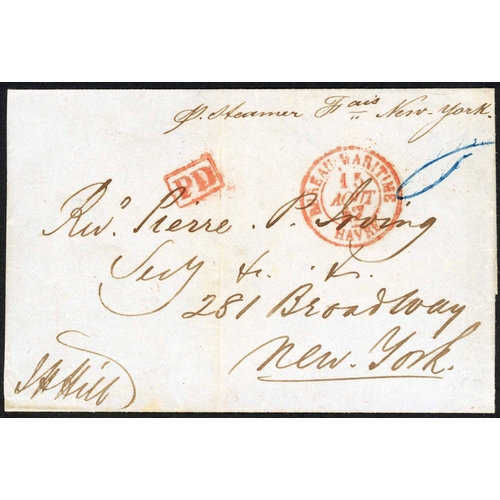 p. Steamer Fais New-York.
PD
BUREAU MARITIME
AOUT
HAVRE
Revd Pierre. P. Irving
Secy &c. &c.
281 Broadway
New. York.